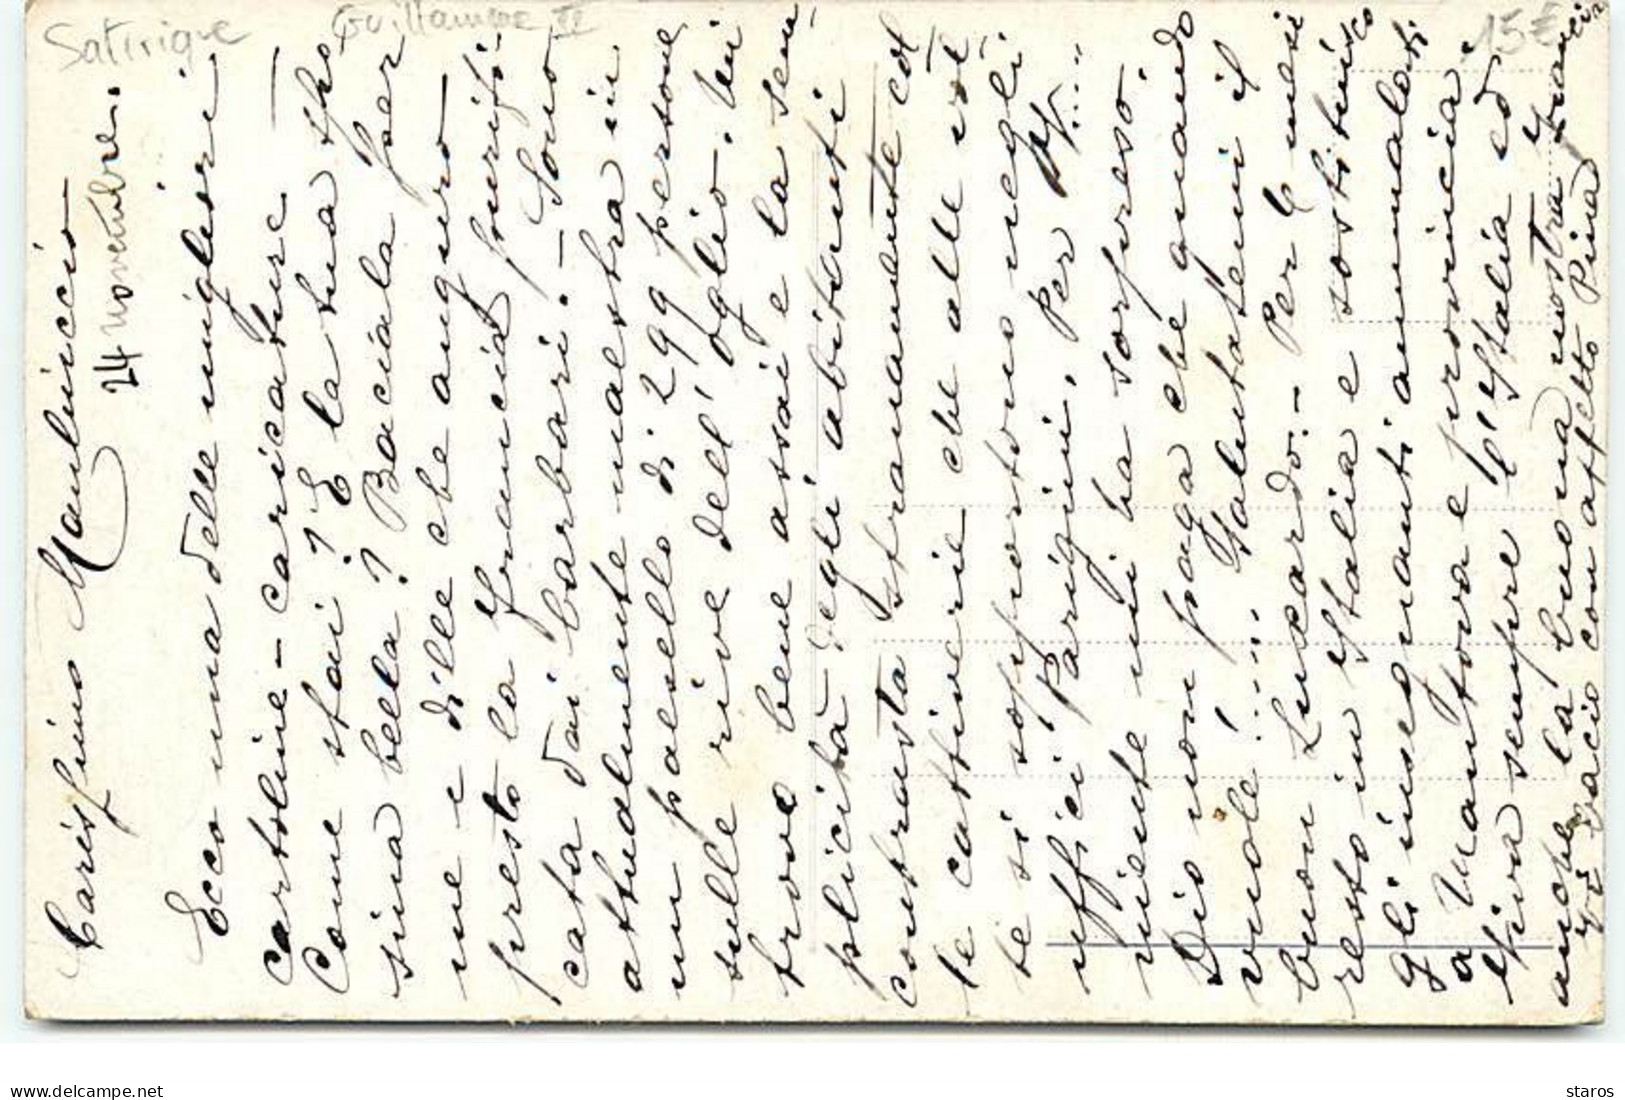 Satirique
Guillaume II
15€
Carissimo Manlinccio
24 novembre.
Ecco una delle migliori
cartoline - caricature -
Come stai? E la tua spo
sina bella? Baciala per
me e dille che auguro
presto la Francia purifi-
cata dai barbari. - Sono
attualmente maestra in
un paesello di 299 persone
sulle rive dell'Oglio. Mi
trovo bene assai e la sem-
plicità degli abitanti
contrasta stranamente col
le cattiverie che alle vol
te si sopportano negli
uffici Parigini. Per M....
niente mi ha sorpreso.
Dio non paga che quando
vuole!...... Salutatemi il
buon Luccardo. - Per 6 mesi
resto in Italia e sostituisco
gli insegnanti ammalati
a Mantova e provincia.
Viva sempre l'Italia ed
anche la buona nostra Francia
Vi bacio con affetto Pina
delcampe.net
staros